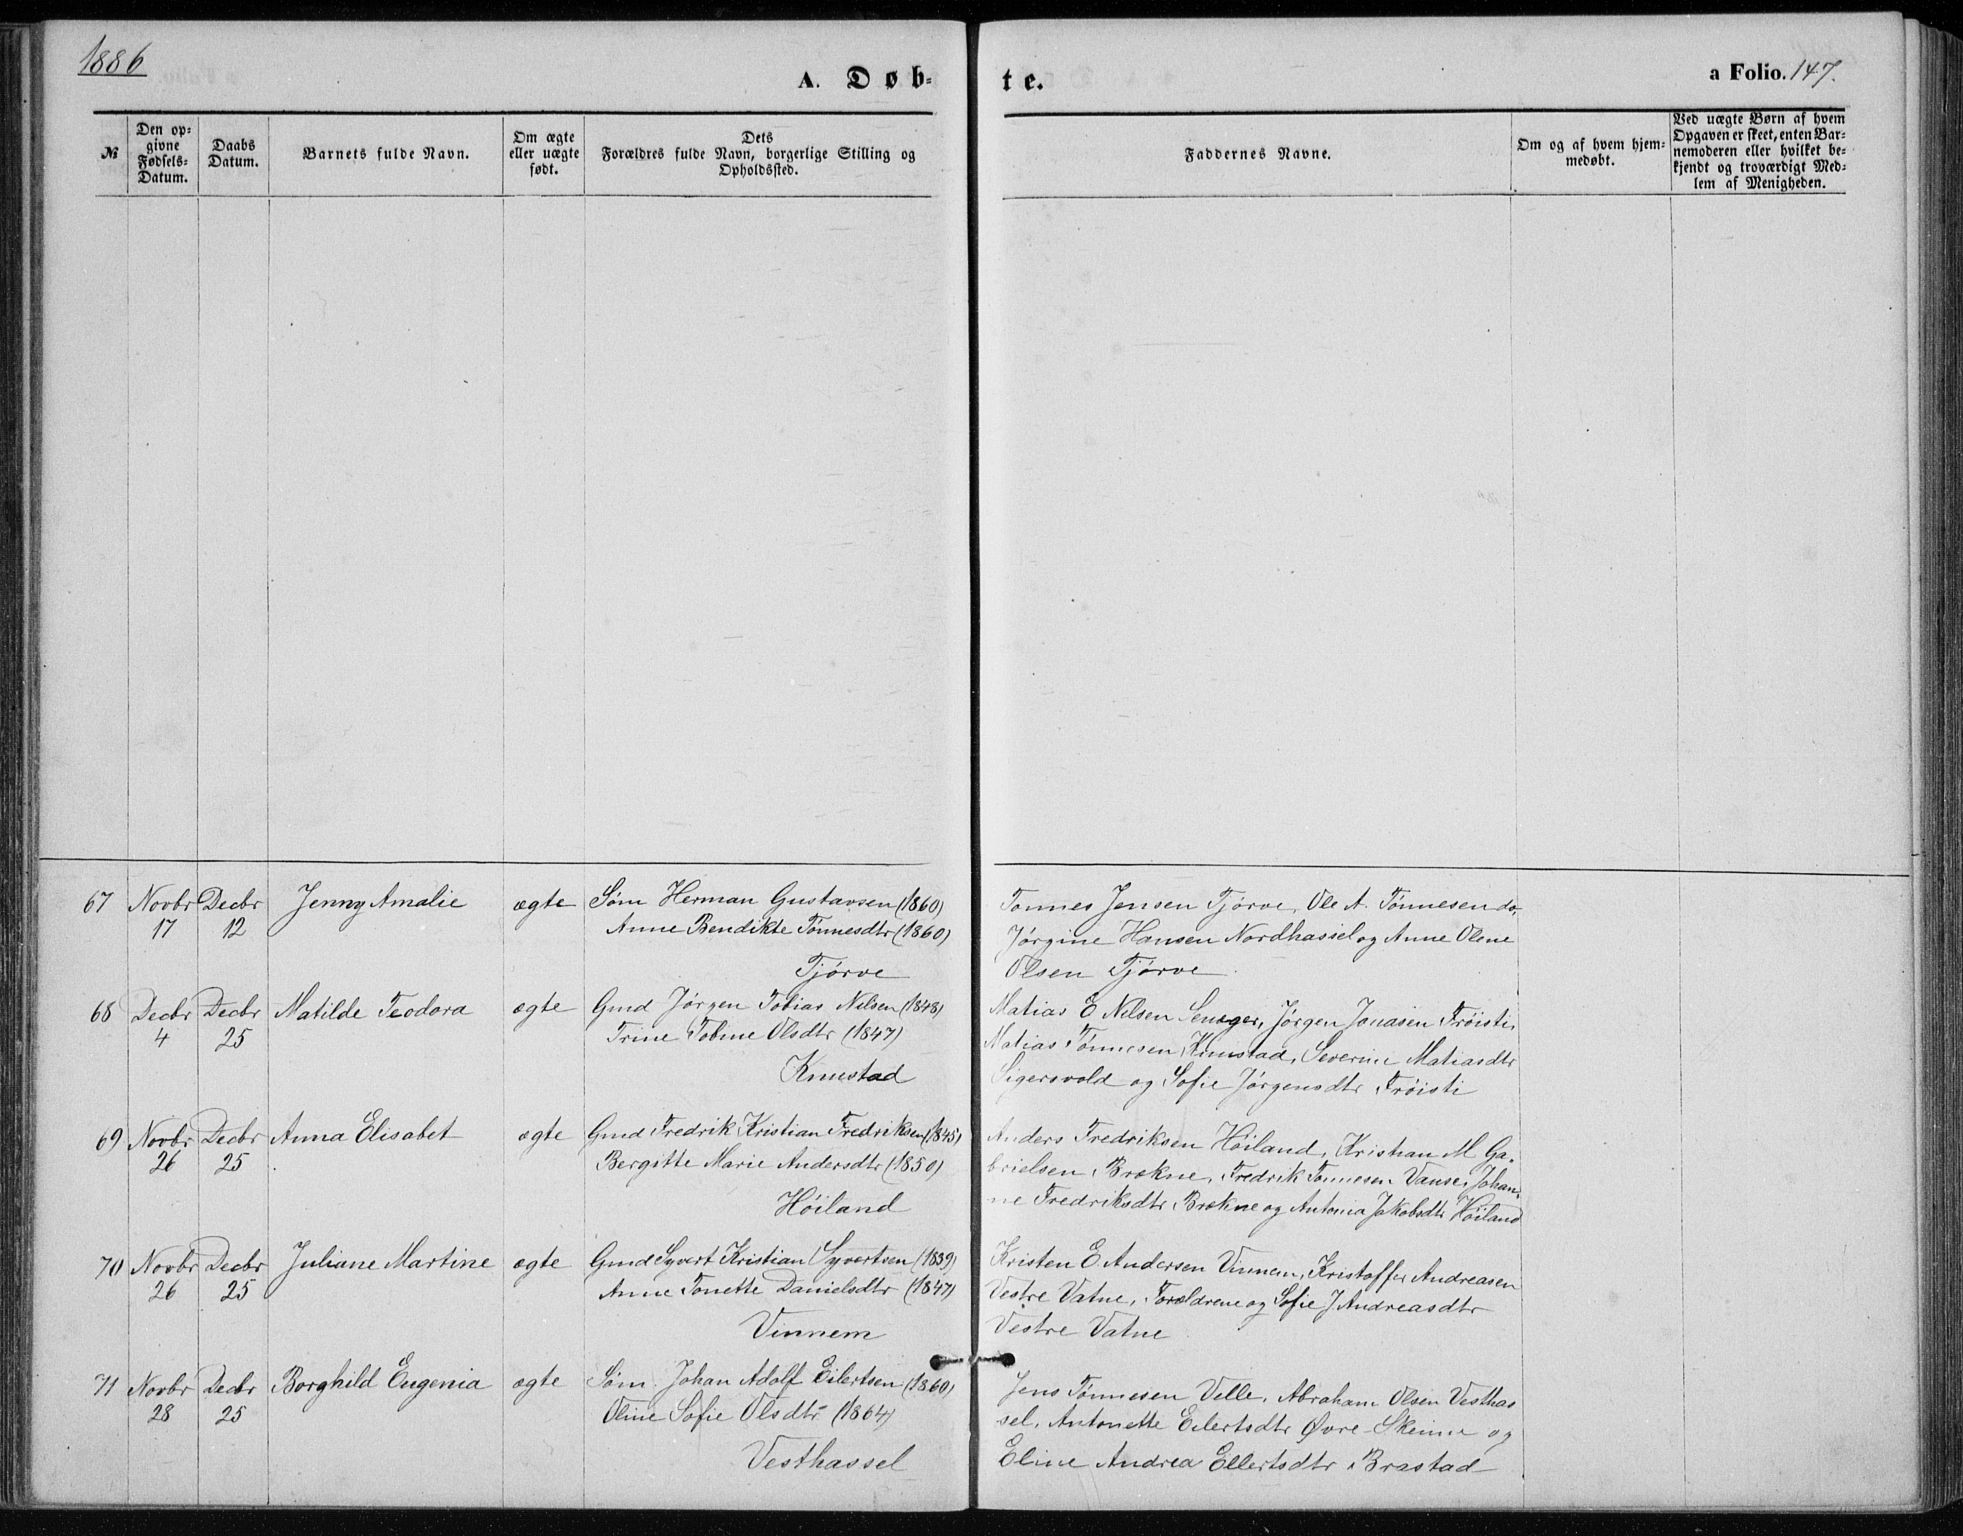 1886
A. Døb-
te.
a Folio. 147.
№
Den op-
givne
Fødsels-
Datum.
Daabs
Datum.
Barnets fulde Navn.
Om ægte
eller uægte
født.
Dets
Forældres fulde Navn, borgerlige Stilling og
Opholdssted.
Faddernes Navne.
Om og af hvem hjem-
medøbt.
Ved uægte Børn af hvem
Opgaven er skeet, enten Bar-
nemoderen eller hvilket be-
kjendt og troværdigt Med-
lem af Menigheden.
67 Novbr Decbr Jenny Amalie ægte Søm Herman Gustavsen (1860)
17 12 Anne Bendikte Tønnesdtr (1860)
Tjørve
Tønnes Jensen Tjørve, Ole A. Tønnesen do,
Jørgine Hansen Nordhassel og Anne Olene
Olsen Tjørve
68 Decbr Decbr Matilde Teodora ægte Gmd Jørgen Tobias Nilsen (1848)
4 25 Trine Tobine Olsdtr (1847)
Knuestad
Matias E Nilsen Jørgen Jonasen Trøisti,
Matias Tønnesen Severine Matiasdtr
Sigersvold og Sofie Jørgensdtr Trøisti
69 Novbr Decbr Anna Elisabet ægte Gmd Fredrik Kristian Fredriksen (1845)
26 25 Bergitte Marie Andersdtr (1850)
Høiland
Anders Fredriksen Høiland, Kristian M Ga-
brielsen, Brekne, Fredrik Tønnesen Vanse, Johan-
ne Fredriksdtr Brekne og Antonia Jakobsdtr Høiland
70 Novbr Decbr Juliane Martine ægte Gmd Syvert Kristian Syvertsen (1839)
26 25 Anne Tonette Danielsdtr (1847)
Vinnem
Kristen E. Andersen Vinnem, Kristoffer Andreasen
Vestre Vatne, Forældrene og Sofie J Andreasdtr
Vestre Vatne
71 Novbr Decbr Borghild Eugenia ægte Søm. Johan Adolf Eilertsen (1860)
28 25 Oline Sofie Olsdtr (1864)
Vesthassel
Jens Tønnesen Velle, Abraham Olsen Vesthas
sel, Antonette Eilertsdtr Øvre og
Eline Andrea Ellertsdtr Brastad